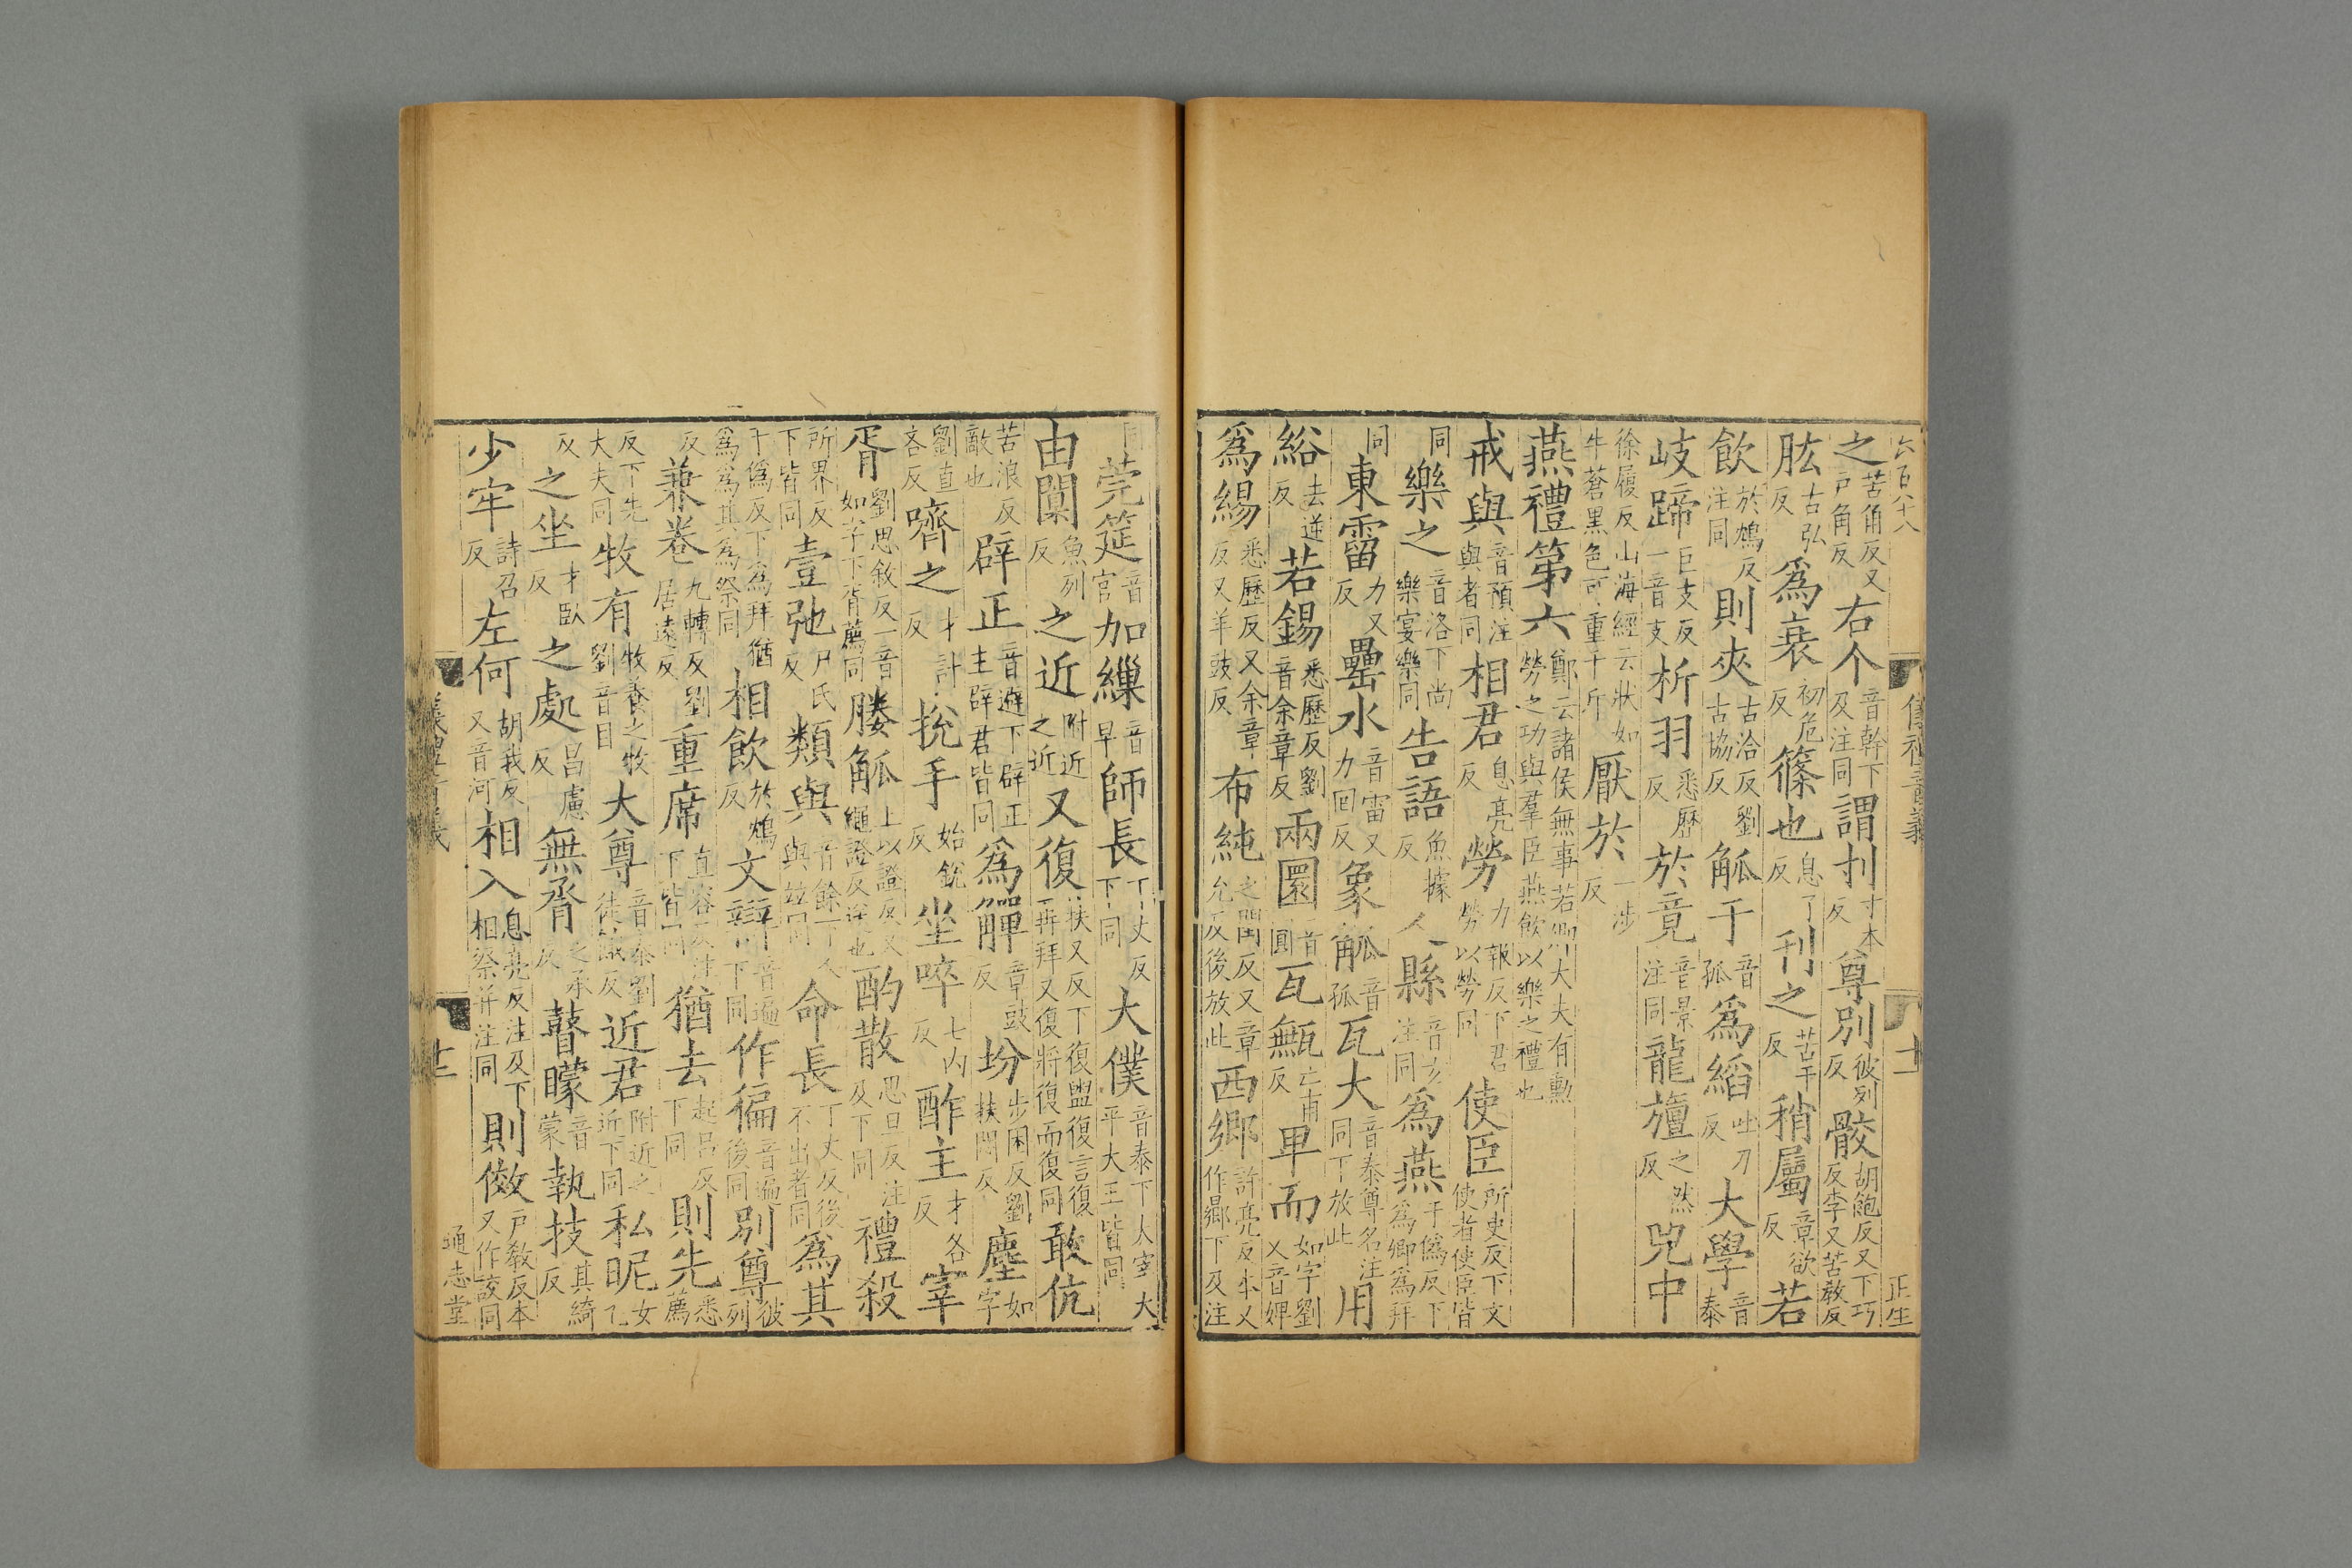 六百八十八
儀禮音義 十一 正生
之苦角反又戶角反右个音幹下及注同謂刌寸本反尊別彼列反骹胡飽反又下巧反李又苦教反
肱古弘反爲衰初危反篠也息了反刊之苦干反稍屬章欲反若
飲於鴆反注同則夾古洽反劉古協反觚于音孤爲縚吐刀反大學音泰
岐蹄巨支反一音支析羽悉歷反於竟音景注同龍旜之然反兕中
徐履反山海經云狀如牛蒼黑色可重千斤厭於一涉反
燕禮第六鄭云諸侯無事若卿大夫有勳勞之功與羣臣燕飲以樂之禮也
戒與音預注與者同相君息亮反勞力報反下君勞以勞同使臣所吏反下文使者使臣皆
同樂之音洛下尚樂宴樂同告語魚據反人縣音玄注同爲燕于僞反下爲卿爲拜
同東霤力又反罍水音雷又力回反象觚音孤瓦大音泰尊名注同下放此用
綌去逆反若錫悉歷反劉音余章反兩圜音圓瓦甒亡甫反卑而如字劉又音婢
爲緆悉歷反又余章反又羊豉反布純之閏反又章允反後放此西鄉許亮反本又作嚮下及注
同莞筵音官加繅音早師長丁丈反下同大僕音泰下大宰大平大王皆同
由闑魚列反之近附近之近又復扶又反下復盥復言復再拜又復將復而復同敢伉
苦浪反敵也辟正音避下辟正主辟君皆同爲觶章豉反坋步困反劉扶悶反塵如字
劉直吝反嚌之才計反挩手始銳反坐啐七內反酢主才各反宰
胥劉思敘反一音如字下胥薦同媵觚上以證反又繩證反送也酌散思旦反注及下同禮殺
所界反下皆同壹弛尸氏反類與音餘下人與玆同命長丁丈反後不出者同爲其
于僞反下爲拜猶爲爲其爲祭同相飲於鴆反文辯音遍下同作徧音遍後同別尊彼列
反兼卷九轉反劉居遠反重席直容反注下皆同猶去起呂反下同則先悉薦
反下先大夫同牧有牧養之牧劉音目大尊音泰劉徒餓反近君附近之近下同私昵女乙
反之坐才臥反之處昌慮反無脀之承反瞽矇音蒙執技其綺反
少牢詩召反左何胡我反又音河相入息亮反注及下相祭并注同則傚戶教反本又作詨同
儀禮音義 十一 通志堂